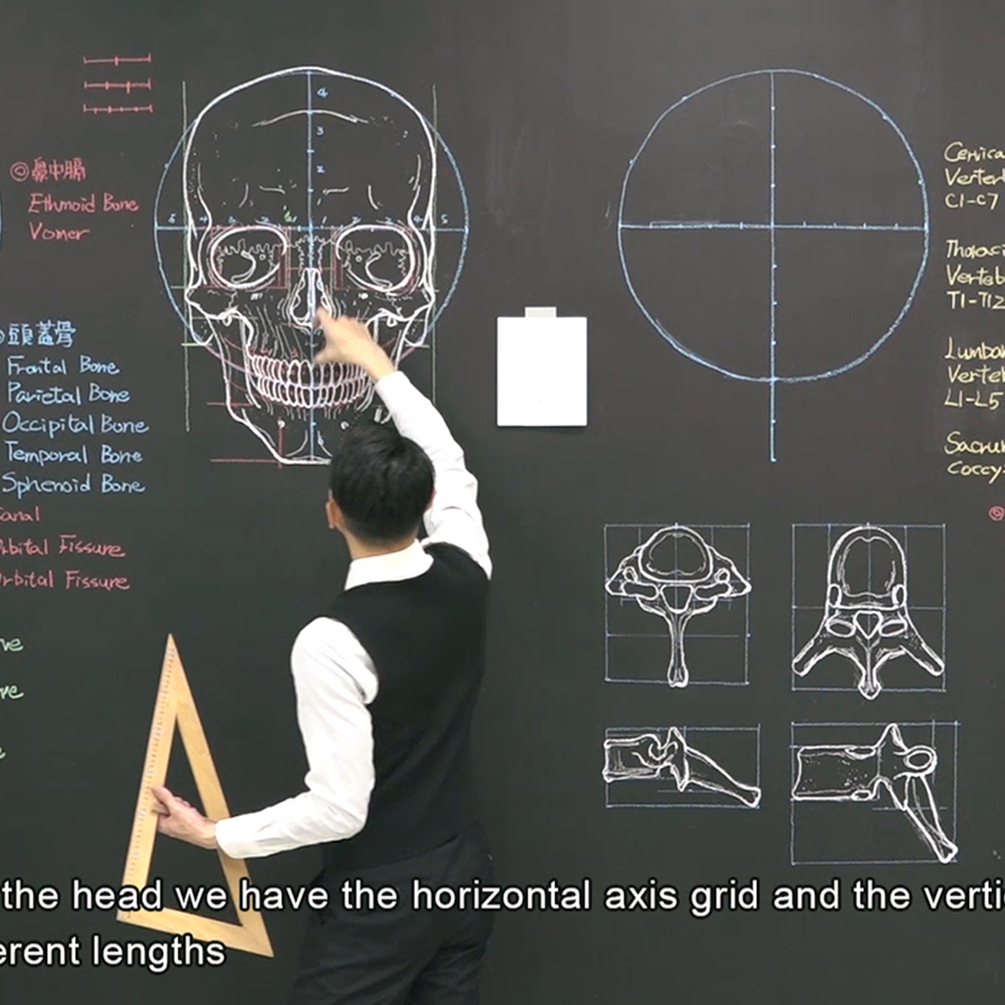 ◎鼻中膈
Ethmoid Bone
Vomer
頭蓋骨
Frontal Bone
Parietal Bone
Occipital Bone
Temporal Bone
Sphenoid Bone
Canal
Orbital Fissure
Orbital Fissure
4
3
2
5
5
Cervica
Verte
C1-C7
Thoraci
Verteb
T1-T12
Lumba
Verte
L1-L5
Sacru
Coccy
the head we have the horizontal axis grid and the verti
erent lengths